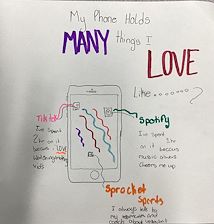 My Phone Holds
MANY things I
LOVE
Like.......?
TikTok
Spotify
I've Spent
2hr on it
because I LOVE
I've Spent
1hr
on it because
music always
cheers me up
Sprocket
Sports
I always talk to
my teammates and
coach about